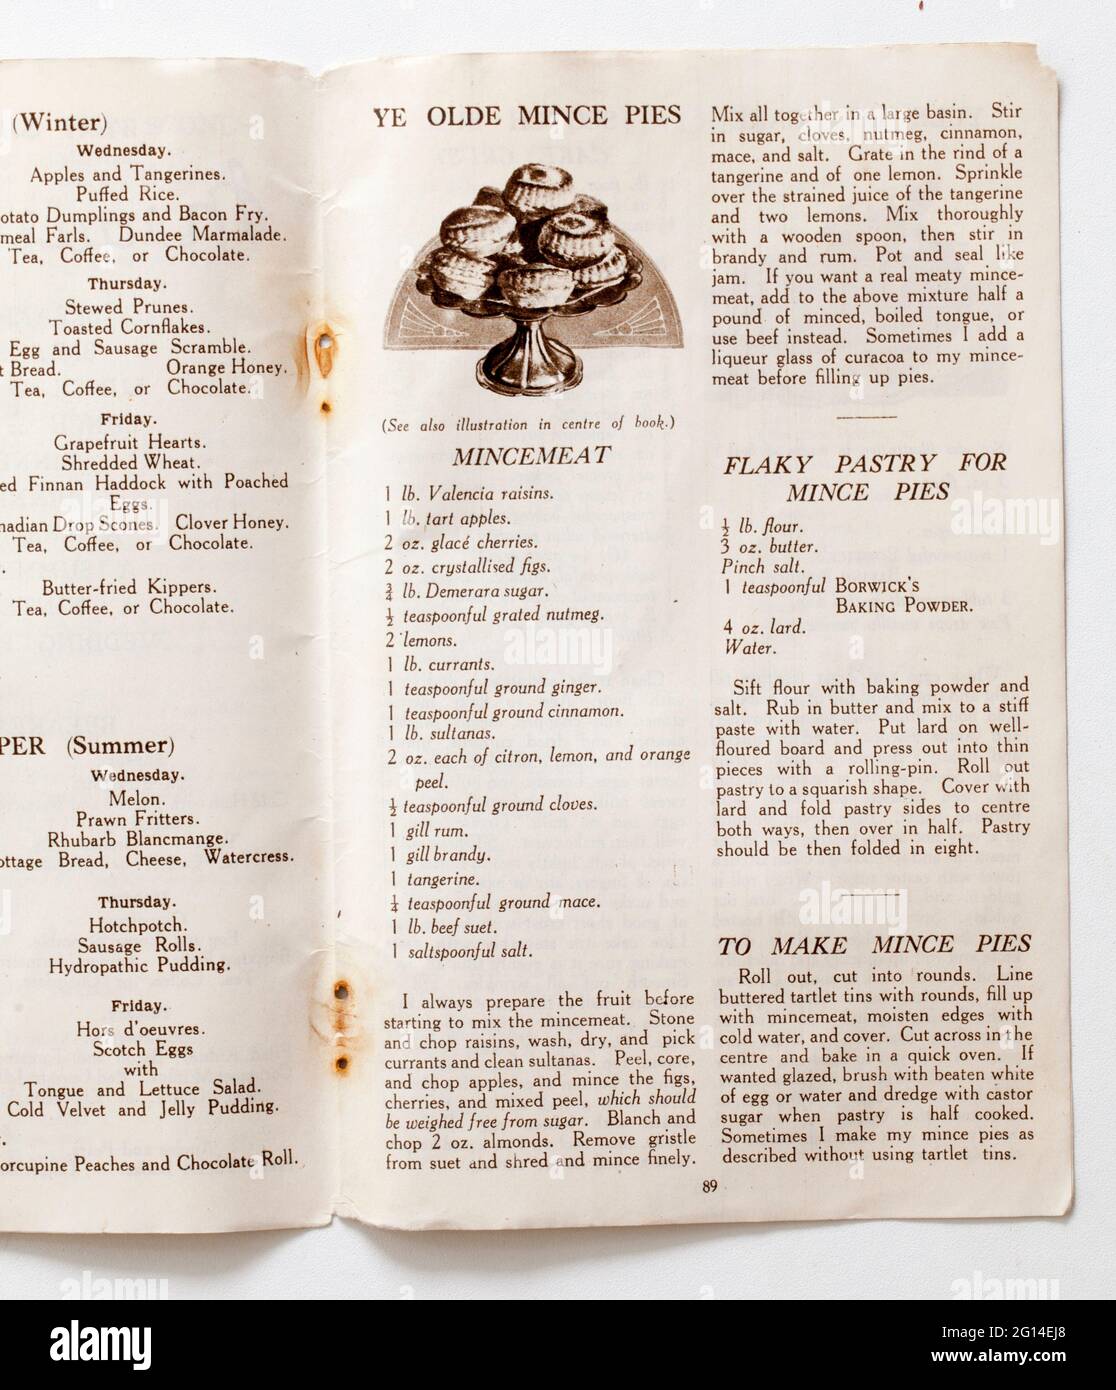 (Winter)
Wednesday.
Apples and Tangerines.
Puffed Rice.
otato Dumplings and Bacon Fry.
meal Farls. Dundee Marmalade.
Tea, Coffee, or Chocolate.
Thursday.
Stewed Prunes.
Toasted Cornflakes.
Egg and Sausage Scramble.
t Bread. Orange Honey.
Tea, Coffee, or Chocolate.
Friday.
Grapefruit Hearts.
Shredded Wheat.
ed Finnan Haddock with Poached
Eggs.
nadian Drop Scones. Clover Honey.
Tea, Coffee, or Chocolate.
Butter-fried Kippers.
Tea, Coffee, or Chocolate.
PER (Summer)
Wednesday.
Melon.
Prawn Fritters.
Rhubarb Blancmange.
ottage Bread, Cheese, Watercress.
Thursday.
Hotchpotch.
Sausage Rolls.
Hydropathic Pudding.
Friday.
Hors d'oeuvres.
Scotch Eggs
with
Tongue and Lettuce Salad.
Cold Velvet and Jelly Pudding.
orcupine Peaches and Chocolate Roll.
YE OLDE MINCE PIES
(See also illustration in centre of book.)
MINCEMEAT
1 lb. Valencia raisins.
1 lb. tart apples.
2 oz. glacé cherries.
2 oz. crystallised figs.
¾ lb. Demerara sugar.
½ teaspoonful grated nutmeg.
2 lemons.
1 lb. currants.
1 teaspoonful ground ginger.
1 teaspoonful ground cinnamon.
1 lb. sultanas.
2 oz. each of citron, lemon, and orange
peel.
½ teaspoonful ground cloves.
1 gill rum.
1 gill brandy.
1 tangerine.
¼ teaspoonful ground mace.
1 lb. beef suet.
1 saltspoonful salt.
I always prepare the fruit before
starting to mix the mincemeat. Stone
and chop raisins, wash, dry, and pick
currants and clean sultanas. Peel, core,
and chop apples, and mince the figs,
cherries, and mixed peel, which should
be weighed free from sugar. Blanch and
chop 2 oz. almonds. Remove gristle
from suet and shred and mince finely.
Mix all together in a large basin. Stir
in sugar, cloves, nutmeg, cinnamon,
mace, and salt. Grate in the rind of a
tangerine and of one lemon. Sprinkle
over the strained juice of the tangerine
and two lemons. Mix thoroughly
with a wooden spoon, then stir in
brandy and rum. Pot and seal like
jam. If you want a real meaty mince-
meat, add to the above mixture half a
pound of minced, boiled tongue, or
use beef instead. Sometimes I add a
liqueur glass of curacoa to my mince-
meat before filling up pies.
FLAKY PASTRY FOR
MINCE PIES
½ lb. flour.
3 oz. butter.
Pinch salt.
1 teaspoonful BORWICK'S
BAKING POWDER.
4 oz. lard.
Water.
Sift flour with baking powder and
salt. Rub in butter and mix to a stiff
paste with water. Put lard on well-
floured board and press out into thin
pieces with a rolling-pin. Roll out
pastry to a squarish shape. Cover with
lard and fold pastry sides to centre
both ways, then over in half. Pastry
should be then folded in eight.
TO MAKE MINCE PIES
Roll out, cut into rounds. Line
buttered tartlet tins with rounds, fill up
with mincemeat, moisten edges with
cold water, and cover. Cut across in the
centre and bake in a quick oven. If
wanted glazed, brush with beaten white
of egg or water and dredge with castor
sugar when pastry is half cooked.
Sometimes I make my mince pies as
described without using tartlet tins.
89
alamy
Image ID: 2G14EJ8
www.alamy.com